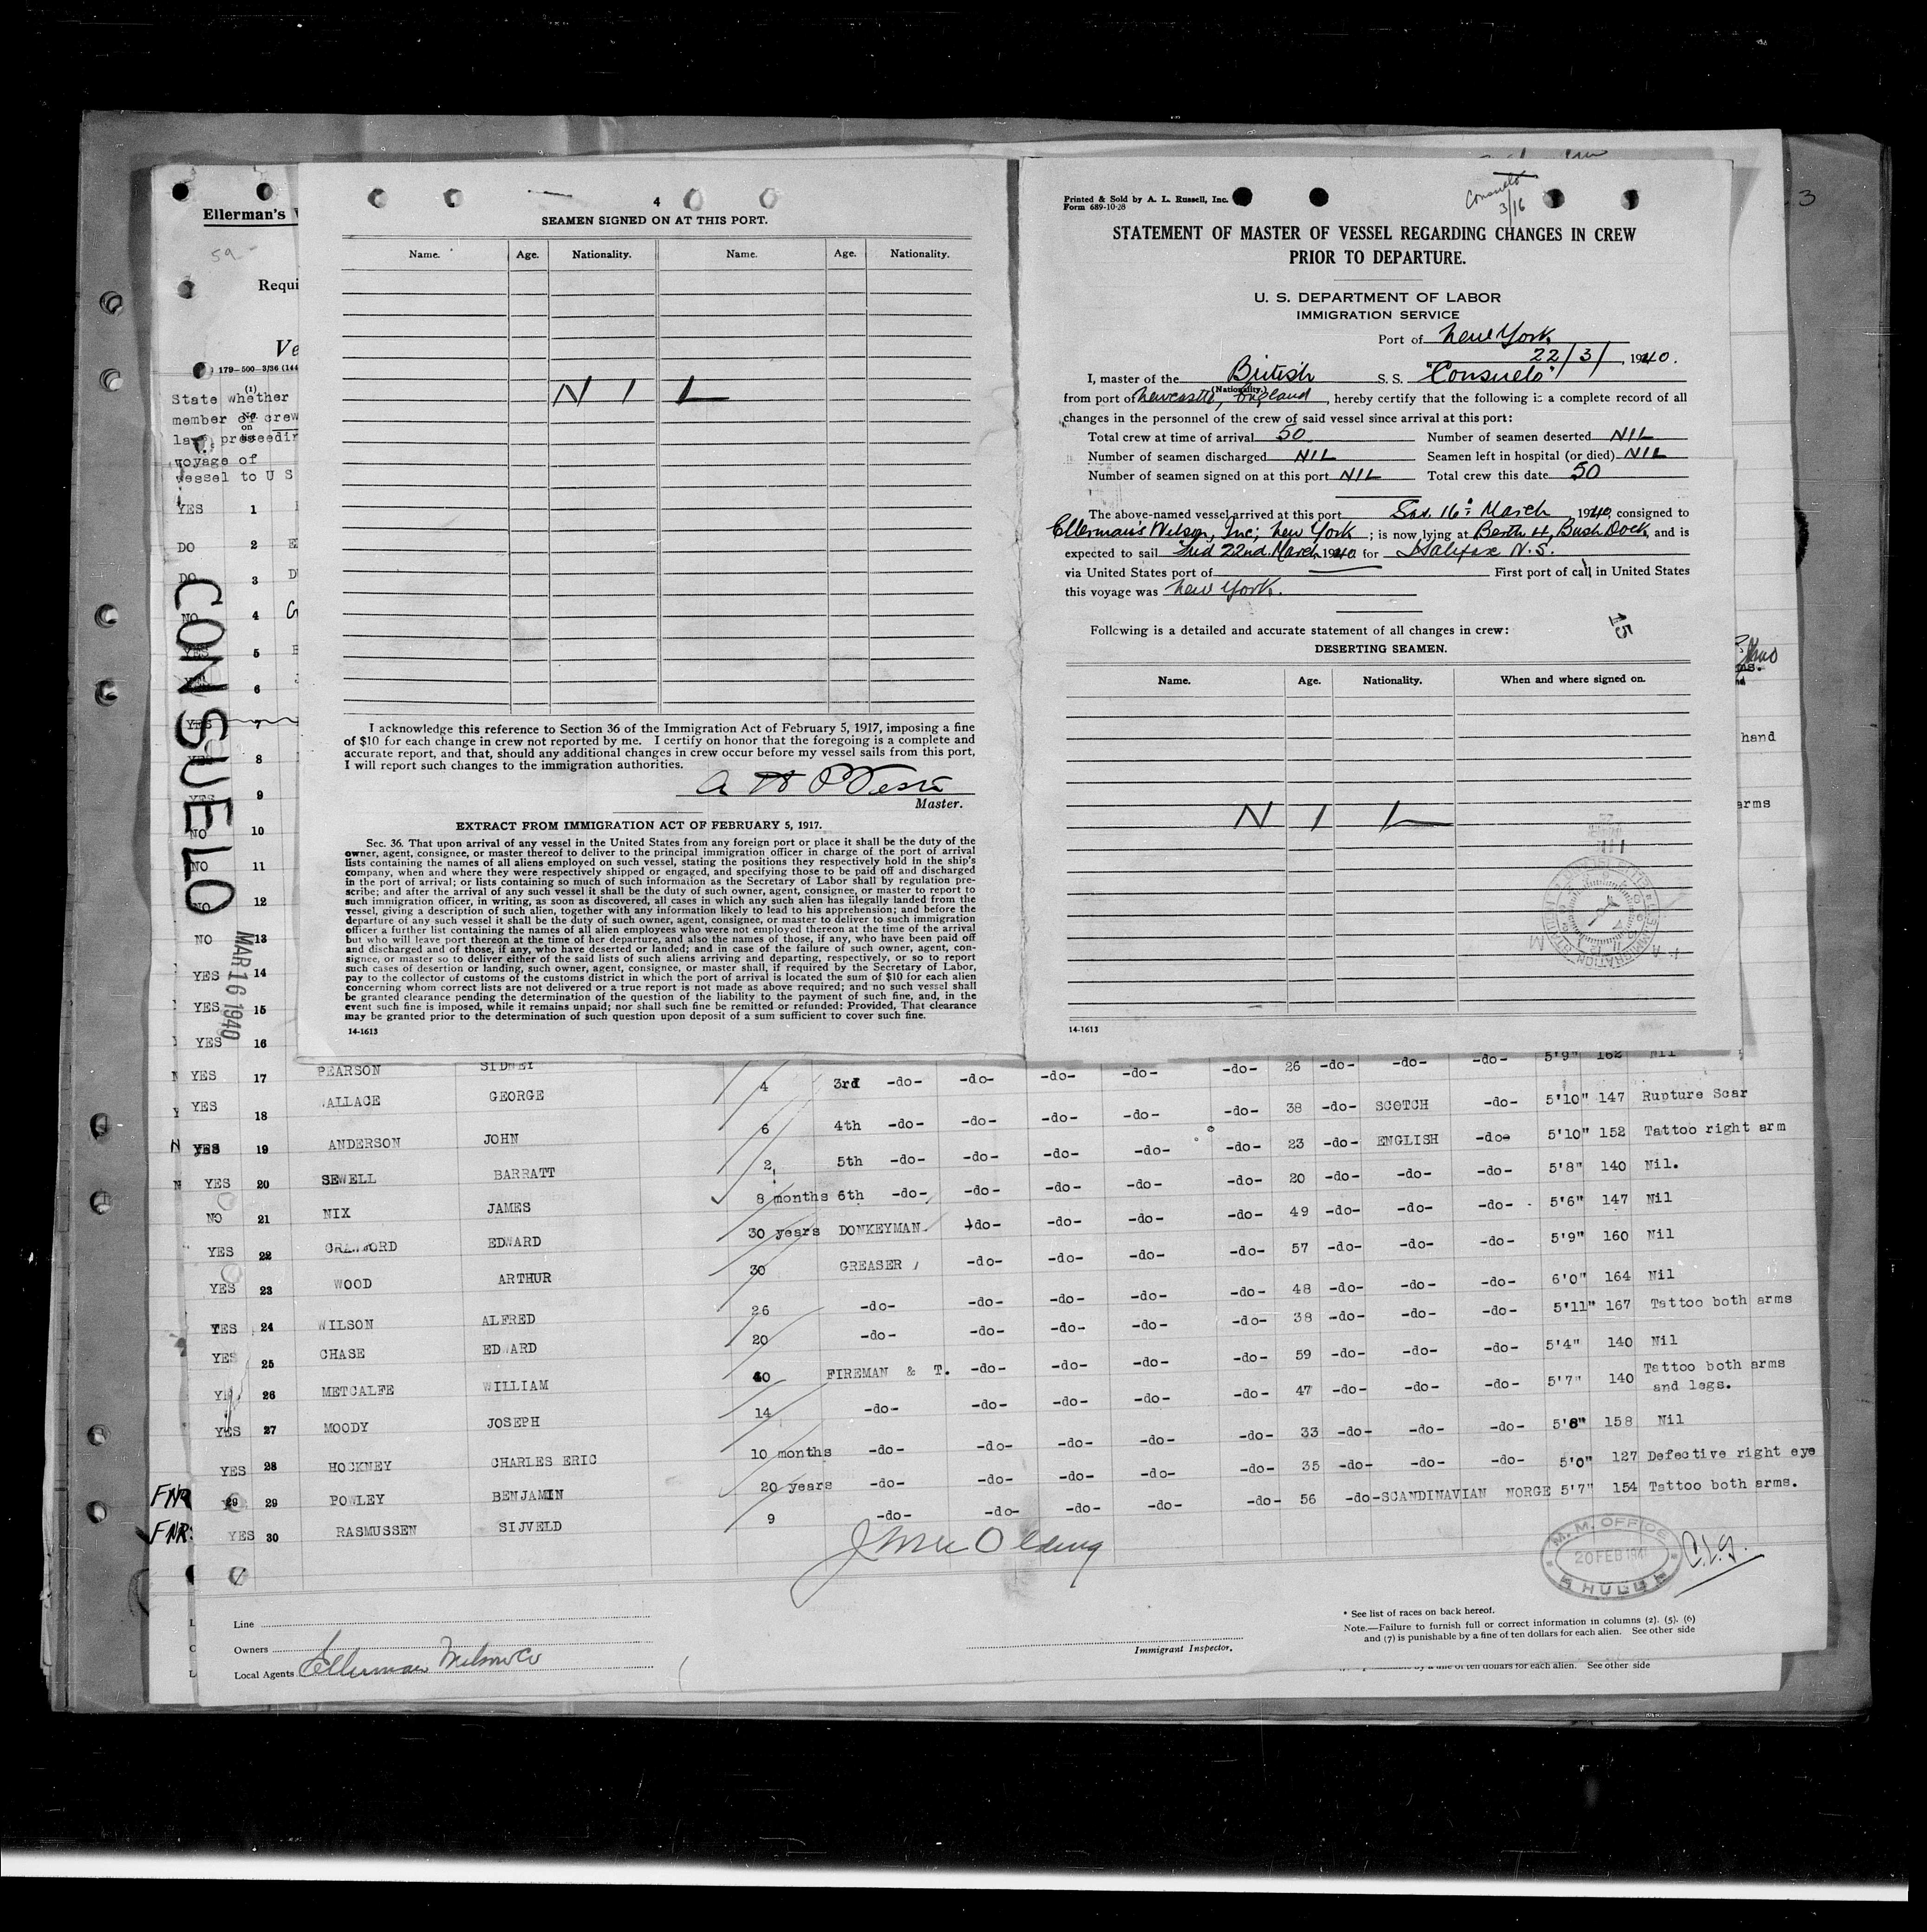 Ellerman's
59-
Requi
Ve
179-500-3/36 (144
(1)
State whether
member of crew
No.
on
voyage of
vessel to U S
YES 1
DO 2
DO 3
NO 4
YES 5
6
YES 7
YES 8
YES 9
NO 10
NO 11
NO 12
NO 13
YES 14
YES 15
YES 16
CONSUELO
MAR 16 1940
4
SEAMEN SIGNED ON AT THIS PORT.
Name. Age. Nationality. Name. Age. Nationality.
N I L
I acknowledge this reference to Section 36 of the Immigration Act of February 5, 1917, imposing a fine
of $10 for each change in crew not reported by me. I certify on honor that the foregoing is a complete and
accurate report, and that, should any additional changes in crew occur before my vessel sails from this port,
I will report such changes to the immigration authorities.
Master.
EXTRACT FROM IMMIGRATION ACT OF FEBRUARY 5, 1917.
Sec. 36. That upon arrival of any vessel in the United States from any foreign port or place it shall be the duty of the
owner, agent, consignee, or master thereof to deliver to the principal immigration officer in charge of the port of arrival
lists containing the names of all aliens employed on such vessel, stating the positions they respectively hold in the ship's
company, when and where they were respectively shipped or engaged, and specifying those to be paid off and discharged
in the port of arrival; or lists containing so much of such information as the Secretary of Labor shall by regulation pre-
scribe; and after the arrival of any such vessel it shall be the duty of such owner, agent, consignee, or master to report to
such immigration officer, in writing, as soon as discovered, all cases in which any such alien has illegally landed from the
vessel, giving a description of such alien, together with any information likely to lead to his apprehension; and before the
departure of any such vessel it shall be the duty of such owner, agent, consignee, or master to deliver to such immigration
officer a further list containing the names of all alien employees who were not employed thereon at the time of the arrival
but who will leave port thereon at the time of her departure, and also the names of those, if any, who have been paid off
and discharged and of those, if any, who have deserted or landed; and in case of the failure of such owner, agent, con-
signee, or master so to deliver either of the said lists of such aliens arriving and departing, respectively, or so to report
such cases of desertion or landing, such owner, agent, consignee, or master shall, if required by the Secretary of Labor,
pay to the collector of customs of the customs district in which the port of arrival is located the sum of $10 for each alien
concerning whom correct lists are not delivered or a true report is not made as above required; and no such vessel shall
be granted clearance pending the determination of the question of the liability to the payment of such fine, and, in the
event such fine is imposed, while it remains unpaid; nor shall such fine be remitted or refunded: Provided, That clearance
may be granted prior to the determination of such question upon deposit of a sum sufficient to cover such fine.
14-1613
Printed & Sold by A. L. Russell, Inc.
Form 689-10-28
Consuelo
3/16
3
STATEMENT OF MASTER OF VESSEL REGARDING CHANGES IN CREW
PRIOR TO DEPARTURE.
U. S. DEPARTMENT OF LABOR
IMMIGRATION SERVICE
Port of New York
22/3/, 1940.
I, master of the British S. S. "Consuelo"
(Nationality.)
from port of Newcastle, England, hereby certify that the following is a complete record of all
changes in the personnel of the crew of said vessel since arrival at this port:
Total crew at time of arrival 50 Number of seamen deserted NIL
Number of seamen discharged NIL Seamen left in hospital (or died) NIL
Number of seamen signed on at this port NIL Total crew this date 50
The above-named vessel arrived at this port Sat. 16th March, 1940, consigned to
Ellerman's Wilson, Inc; New York; is now lying at Berth 4, Bush Dock, and is
expected to sail Frid 22nd March 1940 for Halifax N.S.
via United States port of First port of call in United States
this voyage was New York.
15
Following is a detailed and accurate statement of all changes in crew:
DESERTING SEAMEN.
Name. Age. Nationality. When and where signed on.
N I L
14-1613
hand
arms
YES 17 PEARSON SIDNEY 4 3rd -do- -do- -do- -do- -do- 26 -do- -do- -do- 5'9" 162 Nil
YES 18 WALLACE GEORGE 6 4th -do- -do- -do- -do- -do- 38 -do- SCOTCH -do- 5'10" 147 Rupture Scar
YES 19 ANDERSON JOHN 2 5th -do- -do- -do- -do- -do- 23 -do- ENGLISH -do- 5'10" 152 Tattoo right arm
YES 20 SEWELL BARRATT 8 months 6th -do- -do- -do- -do- -do- 20 -do- -do- -do- 5'8" 140 Nil.
NO 21 NIX JAMES 30 years DONKEYMAN -do- -do- -do- -do- 49 -do- -do- -do- 5'6" 147 Nil
YES 22 CRAWFORD EDWARD 30 GREASER -do- -do- -do- -do- 57 -do- -do- -do- 5'9" 160 Nil
YES 23 WOOD ARTHUR 26 -do- -do- -do- -do- -do- 48 -do- -do- -do- 6'0" 164 Nil
YES 24 WILSON ALFRED 20 -do- -do- -do- -do- -do- 38 -do- -do- -do- 5'11" 167 Tattoo both arms
YES 25 CHASE EDWARD 40 FIREMAN & T. -do- -do- -do- -do- 59 -do- -do- -do- 5'4" 140 Nil
YES 26 METCALFE WILLIAM 14 -do- -do- -do- -do- -do- 47 -do- -do- -do- 5'7" 140 Tattoo both arms
and legs.
YES 27 MOODY JOSEPH 10 months -do- -do- -do- -do- -do- 33 -do- -do- -do- 5'8" 158 Nil
YES 28 HOCKNEY CHARLES ERIC 20 years -do- -do- -do- -do- -do- 35 -do- -do- -do- 5'0" 127 Defective right eye
FNR 29 POWLEY BENJAMIN 9 -do- -do- -do- -do- -do- 56 -do- SCANDINAVIAN NORGE 5'7" 154 Tattoo both arms.
FNR: YES 30 RASMUSSEN SIJVELD
M. M. OFFICE
20 FEB 194
HULL
Line
Owners
Local Agents Ellerman Wilson Co
Immigrant Inspector.
* See list of races on back hereof.
Note.—Failure to furnish full or correct information in columns (2). (5). (6)
and (7) is punishable by a fine of ten dollars for each alien. See other side
ten dollars for each alien. See other side